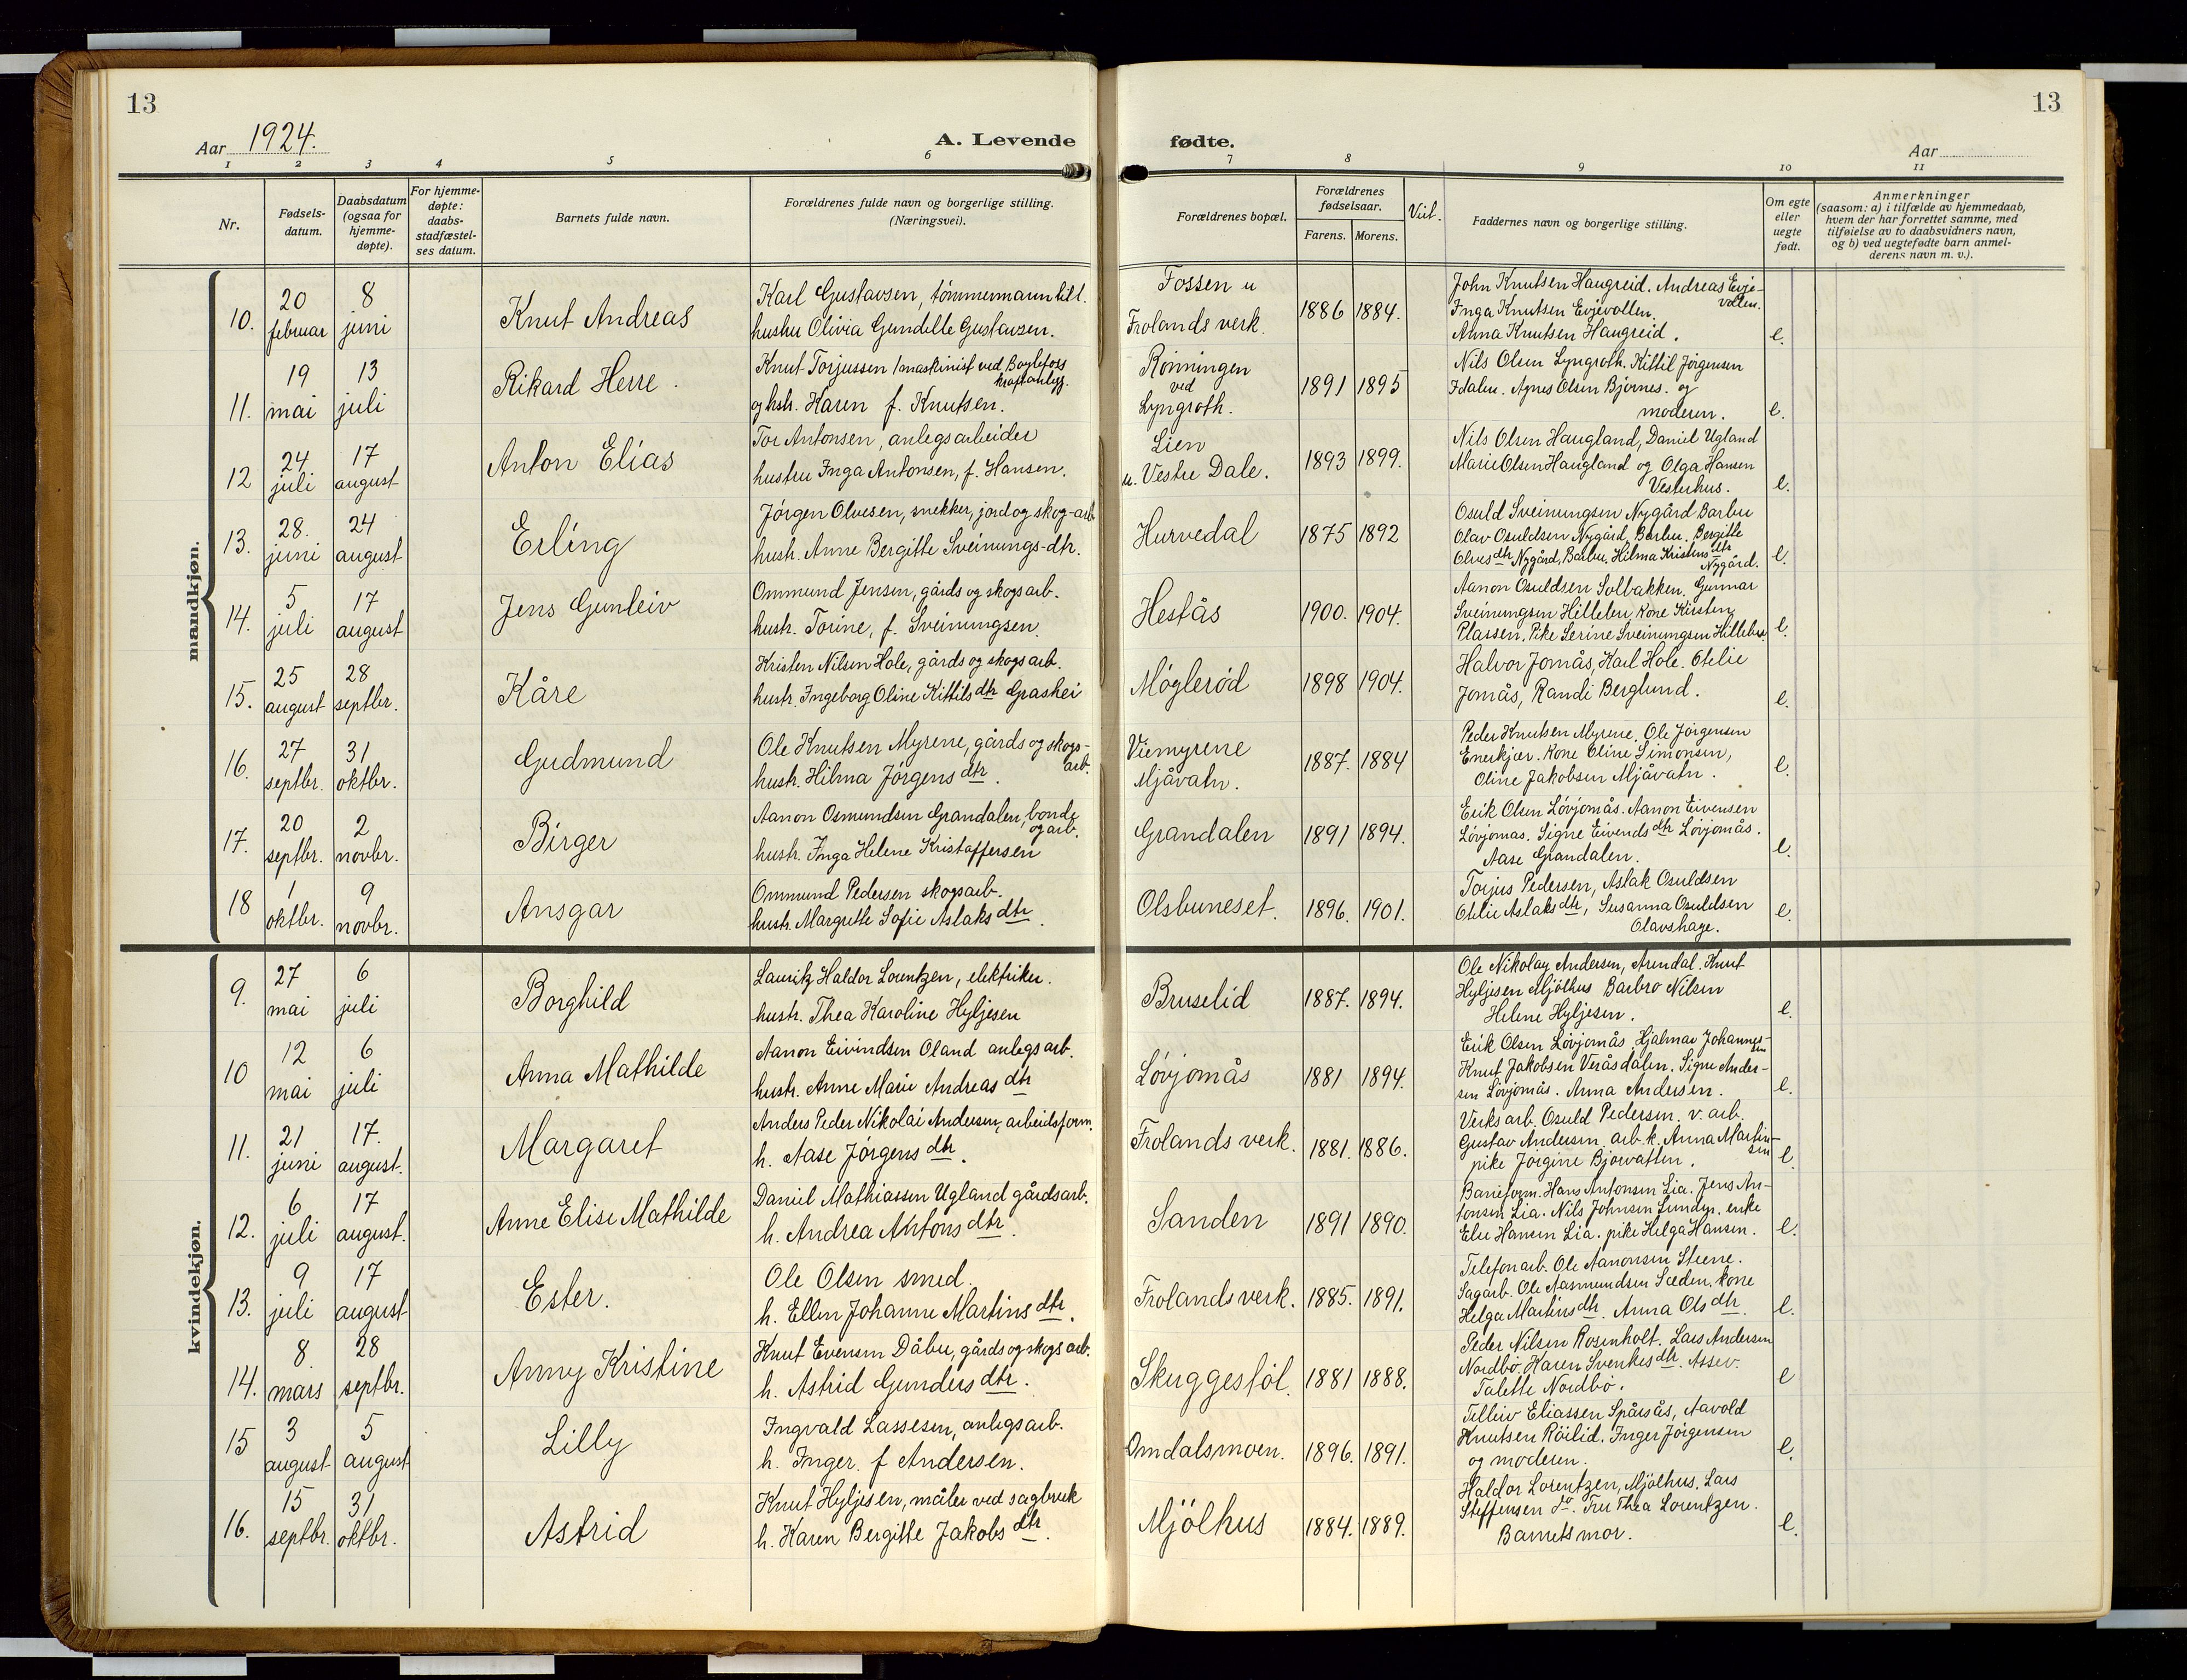 13
13
Aar 1924.
A. Levende fødte.
Aar
1 2 3 4 5 6 7 8 9 10 11
Nr.
Fødsels-
datum.
Daabsdatum
(ogsaa for
hjemme-
døpte).
For hjemme-
døpte:
daabs-
stadfæstel-
ses datum.
Barnets fulde navn.
Forældrenes fulde navn og borgerlige stilling.
(Næringsvei).
Forældrenes bopæl.
Forældrenes
fødselsaar.
Farens. Morens.
Faddernes navn og borgerlige stilling.
Om egte
eller
uegte
født.
Anmerkninger
(saasom: a) i tilfælde av hjemmedaab,
hvem der har forrettet samme, med
tilføielse av to daabsvidners navn,
og b) ved uegtefødte barn anmel-
derens navn m. v.).
mandkjøn.
10. 20 februar 8 juni
Knut Andreas
Karl Gustavsen, tømmermann
hustru Olivia Gundelle Gustavsen.
Fossen u
Frolands verk.
1886 1884.
John Knutsen Haugreid. Andreas Evje-
vollen.
Inga Knutsen Evjevollen.
Anna Knutsen Haugreid.
e.
11. 19 mai 13 juli
Rikard Herre.
Knut Torjussen / maskinist ved Bøylefoss
kraftanlegg.
og hstr. Karen f. Knutsen.
Rønningen
ved
Lyngroth.
1891 1895
Nils Olsen Lyngroth. Kittil Jørgensen
Idalen. Agnes Olsen Bjørnes. og
moderen.
e.
12 24 juli 17 august
Anton Elias
Tor Antonsen, anlegsarbeider
hustru Inga Antonsen, f. Hansen.
Lien
u. Vestre Dale.
1893 1899.
Nils Olsen Haugland, Daniel Ugland
Marie Olsen Haugland og Olga Hansen
Vesterhus.
e.
13. 28. juni 24 august
Erling
Jørgen Olvesen, snekker, jord og skog-arb
hustr. Anne Bergitte Sveinungs-dtr.
Hurvedal
1875 1892
Osuld Sveinungsen Nygård Barbu
Olav Osuldsen Nygård, Barbu. Bergitte
Olvesdtr Nygård, Barbu. Hilma Kristensdtr
Nygård.
e.
14. 5 juli 17 august
Jens Gunleiv
Ommund Jensen, gårds og skogsarb.
hustr. Torine, f. Sveinungsen.
Heståș
1900. 1904.
Aanon Osuldsen Solbakken. Gunnar
Sveinungsen Hilleben, kone Kirsten
Plassen. Pike Serine Sveinungsen Hilleben
e.
15. 25 august 28 septbr.
Kåre
Kristen Nilsen Hole, gårds og skogsarb.
hustr. Ingeborg Oline Kittilsdtr Grashei
Møglerød
1898 1904.
Halvor Jomås, Karl Hole. Otelie
Jomås, Randi Berglund.
e.
16. 27 septbr. 31 oktbr.
Gudmund
Ole Knutsen Myrene, gårds og skogs-
arb.
hustr. Hilma Jørgensdtr.
Viemyrene
Mjåvatn.
1887. 1884
Peder Knutsen Myrene. Ole Jørgensen
Enerkjær. Kone Oline Simonsen,
Oline Jakobsen Mjåvatn.
e.
17. 20 septbr. 2 novbr.
Birger
Aanon Osmundsen Grandalen, bonde
og arb.
hustr. Inga Helene Kristoffersen
Grandalen
1891 1894.
Erik Olsen Løvjomås. Aanon Eivensen
Løvjomas. Signe Eivendsdtr Løvjomås.
Aase Grandalen.
e.
18 1 oktbr. 9 novbr.
Ansgar
Ommund Pedersen skogsarb.
hustr. Margrethe Sofie Aslaksdtr.
Olsbuneset.
1896. 1901.
Torjus Pedersen, Aslak Osuldsen
Otelie Aslaksdtr, Susanna Osuldsen
Olavshage.
e.
kvindekjøn.
9. 27 mai 6 juli
Borghild
Lauritz Haldor Lorentzen, elektriker.
hustr. Thea Karoline Hyljesen
Bruselid
1887. 1894.
Ole Nikolay Andersen, Arendal. Knut
Hyljesen Mjølhus Barbro Nilsen
Helene Hyljesen.
e.
10 12 mai 6 juli
Anna Mathilde
Aanon Eivindsen Oland anlegsarb.
hustr. Anne Marie Andreasdtr
Løvjomås
1881 1894.
Erik Olsen Løvjomås. Hjalmar Johannes-
sen
Knut Jakobsen Veråsdalen. Signe Ander-
sen Løvjomås. Anna Andersen.
e.
11. 21 juni 17. august.
Margaret
Anders Peder Nikolai Andersen, arbeidsform.
h. Aase Jørgensdtr.
Frolands verk.
1881. 1886.
Verksarb. Osuld Pedersen. v. arb.
Gustav Andersen, arb. k. Anna Martin-
sen
pike Jørgine Bjorvatten.
e.
12. 6 juli 17 august.
Anne Elise Mathilde
Daniel Mathiassen Ugland gårdsarb.
h. Andrea Antonsdtr.
Sanden
1891 1890.
Hans Antonsen Lia. Jens An-
tonsen Lia. Nils Johnsen Lunden. enke
Elie Hansen Lia. pike Helga Hansen.
e.
13. 9 juli 17 august
Ester.
Ole Olsen smed.
h. Ellen Johanne Martinsdtr.
Frolands verk.
1885. 1891.
Telefonarb. Ole Aanonsen Steene.
Sagarb. Ole Aasmundsen Sæden. kone
Helga Martinsdtr. Anna Olsdtr.
e.
14. 8. mars 28 septbr.
Anny Kristine
Knut Evensen Dåbu, gårds og skogsarb.
h. Astrid Gundersdtr.
Skuggestøl.
1881 1888.
Peder Nilsen Rosenholt. Lars Andersen
Nordbø. Karen Svenkesdtr. Assev.
Talette Nordbø.
e
15 3 august 5 august
Lilly
Ingvald Lassesen, anlegsarb.
h. Inger. f Andersen.
Omdalsmoen.
1896. 1891.
Telleiv Eliassen Spårsås, Aavold
Knutsen Røilid. Inger Jørgensen
og moderen.
e.
16. 15 septbr. 31 oktbr.
Astrid
Knut Hyljesen, måler ved sagbruk
h. Karen Bergitte Jakobsdtr.
Mjölhus
1884. 1889.
Haldor Lorentzen, Mjølhus. Lars
Steffensen do. Fru Thea Lorentzen.
Barnets mor.
e.